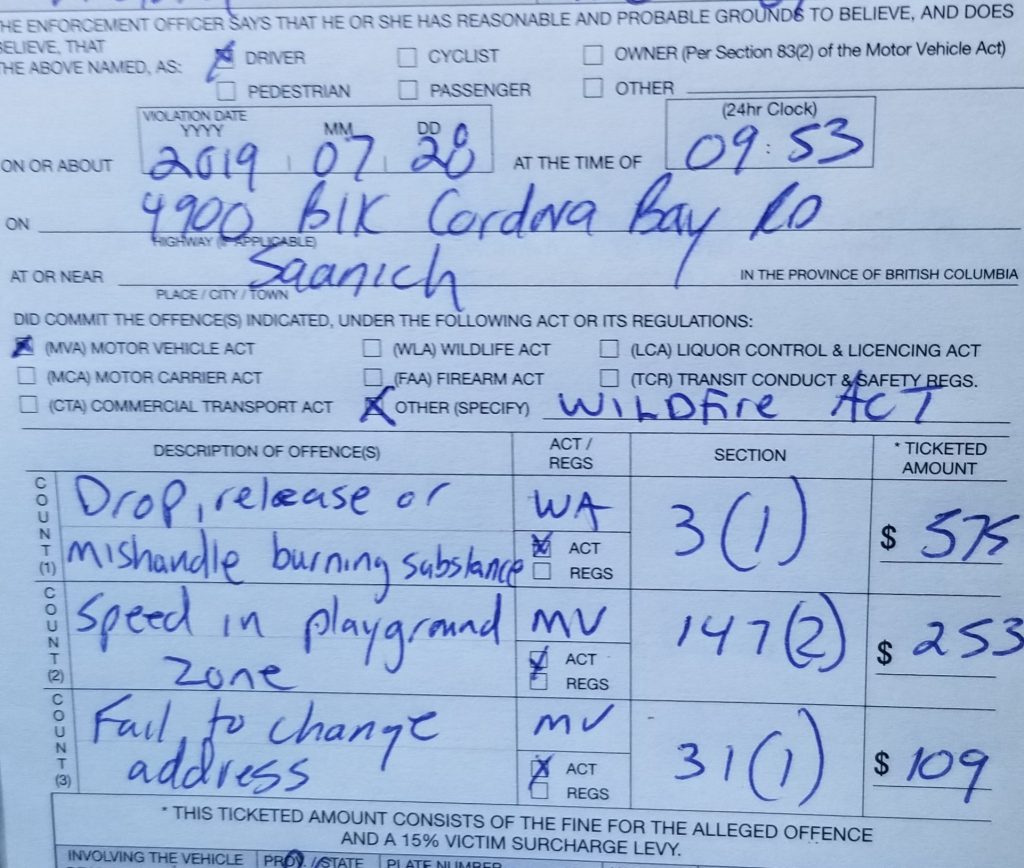 THE ENFORCEMENT OFFICER SAYS THAT HE OR SHE HAS REASONABLE AND PROBABLE GROUNDS TO BELIEVE, AND DOES
BELIEVE, THAT
THE ABOVE NAMED, AS:
DRIVER
CYCLIST
OWNER (Per Section 83(2) of the Motor Vehicle Act)
PEDESTRIAN
PASSENGER
OTHER
VIOLATION DATE
YYYY MM DD
(24hr Clock)
ON OR ABOUT 2019 07 28 AT THE TIME OF 09:53
ON 4900 BLK Cordova Bay RD
HIGHWAY (IF APPLICABLE)
AT OR NEAR Saanich IN THE PROVINCE OF BRITISH COLUMBIA
PLACE / CITY / TOWN
DID COMMIT THE OFFENCE(S) INDICATED, UNDER THE FOLLOWING ACT OR ITS REGULATIONS:
(MVA) MOTOR VEHICLE ACT (WLA) WILDLIFE ACT (LCA) LIQUOR CONTROL & LICENCING ACT
(MCA) MOTOR CARRIER ACT (FAA) FIREARM ACT (TCR) TRANSIT CONDUCT & SAFETY REGS.
(CTA) COMMERCIAL TRANSPORT ACT OTHER (SPECIFY) WILDFire ACT
DESCRIPTION OF OFFENCE(S)
ACT /
REGS
SECTION
* TICKETED
AMOUNT
COUNT (1)
Drop, release or
mishandle burning substance
WA
ACT
REGS
3(1)
$ 575
COUNT (2)
Speed in playground
zone
MV
ACT
REGS
147(2)
$ 253
COUNT (3)
Fail to change
address
MV
ACT
REGS
31(1)
$ 109
* THIS TICKETED AMOUNT CONSISTS OF THE FINE FOR THE ALLEGED OFFENCE
AND A 15% VICTIM SURCHARGE LEVY.
INVOLVING THE VEHICLE PROV. / STATE PLATE NUMBER